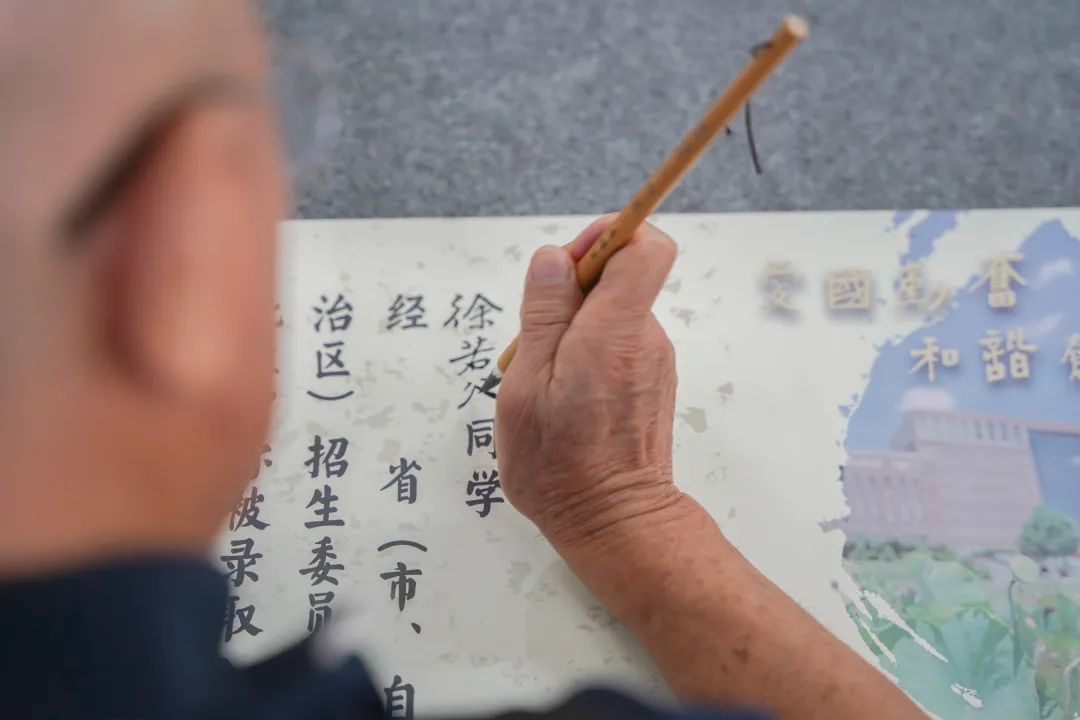 爱國勤奮
和諧
徐若 同学
经 省（市、自
治区）招生委员
被录取